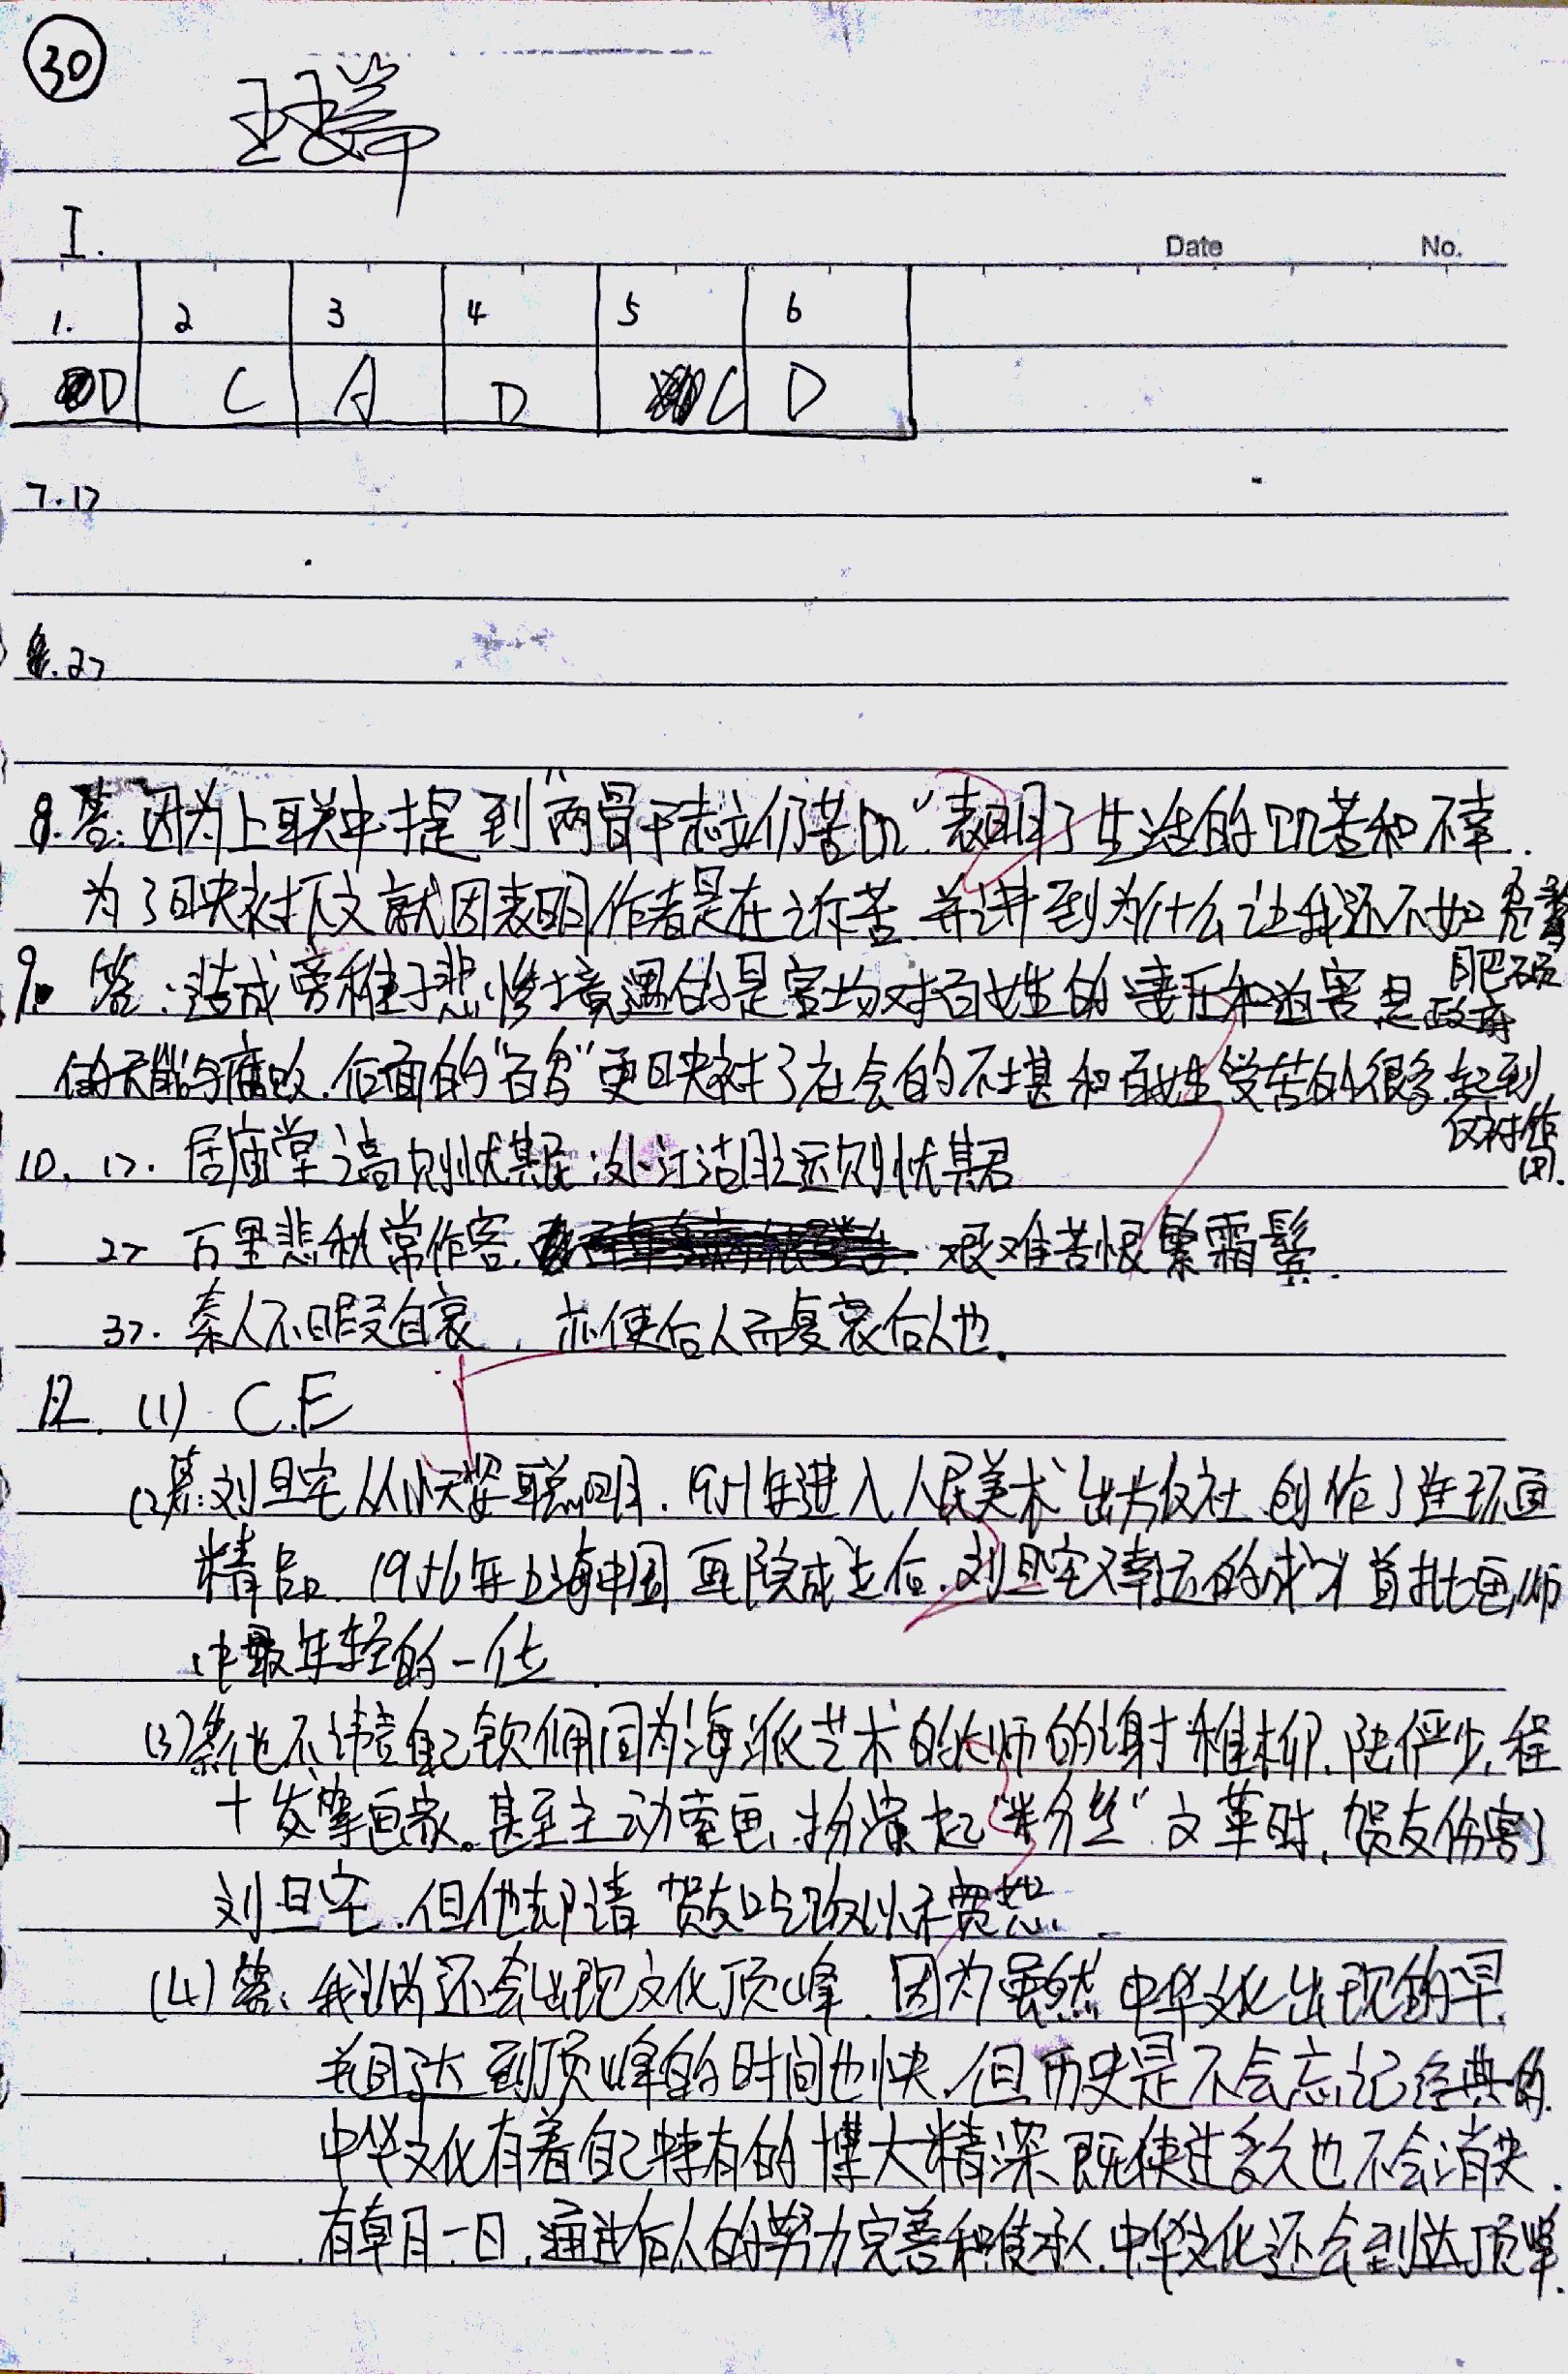 30
I.
Date No.
1. 2 3 4 5 6
D C A D C D
7.1>
2>
8.答:因为上联中提到"两骨 仍苦饥"表明了生活的饥苦和不幸.
为了映衬下文就因表明作者是在诉苦.并讲到为什么让我还不如
肥硕
9. 答:造成旁稚子悲惨境遇的是官场对百姓的 和迫害是政府
的 腐败.后面的"百舍"更映衬了社会的不堪和百姓受苦的很多.起到
反衬作
用.
10. 1>. 居庙堂之高则忧其民;处江湖之远则忧其君
2> 万里悲秋常作客, 艰难苦恨繁霜鬓.
3>. 秦人不暇自哀, 亦使后人而复哀后人也.
12. (1) C.E
(2)答:刘旦宅从小天资聪明.1951年进入人民美术出版社 创作了连环画
精品.1956年上海中国画院成立后.刘旦宅又幸运的成为首批画师
中最年轻的一位.
(3)答:他不讳言自己钦佩同为海派艺术的大师的谢稚柳.陆俨少,程
十发等画家。甚至主动索画,扮演起"粉丝".文革时,贺友伤害了
刘旦宅.但他却请贺友吃饭以示宽恕.
(4)答:我认为还会出现文化顶峰.因为虽然中华文化出现的早.
并且达到顶峰的时间也快.但历史是不会忘记经典的.
中华文化有着自己特有的博大精深 既使过多久也不会消失.
有朝一日,通过后人的努力完善和传承,中华文化还会到达顶峰.